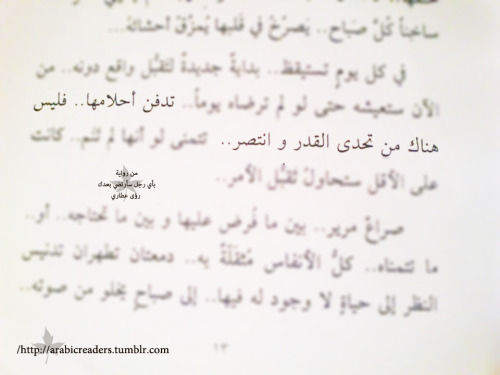 ساخناً كُلَّ صباح.. يَصرُخُ في قَلبها يُمزِّقُ أحشائهُ..
في كل يومٍ تستيقظ.. بدايةً جديدةً لتَقبُّل واقع دونه.. من
الآن ستعيشه حتى لو لم ترضاه يوماً.. تدفن أحلامها.. فليس
هناك من تحدى القدر و انتصر.. تتمنى لو أنها لم تنم.. كانت
على الأقل ستحاولُ تَقبُّل الأمر..
من رواية
بأي رجل سأرتضي بعدك
رؤى عطاري
صراعٌ مرير.. بين ما فُرض عليها و بين ما تحتاجه.. أو..
ما تتمناه.. كلُّ الأنفاس مُثقلَةٌ به.. دمعتان تطهران تدنيس
النظر إلى حياةٍ لا وجود له فيها.. إلى صباحٍ يخلو من صوته..
١٣
/http://arabicreaders.tumblr.com